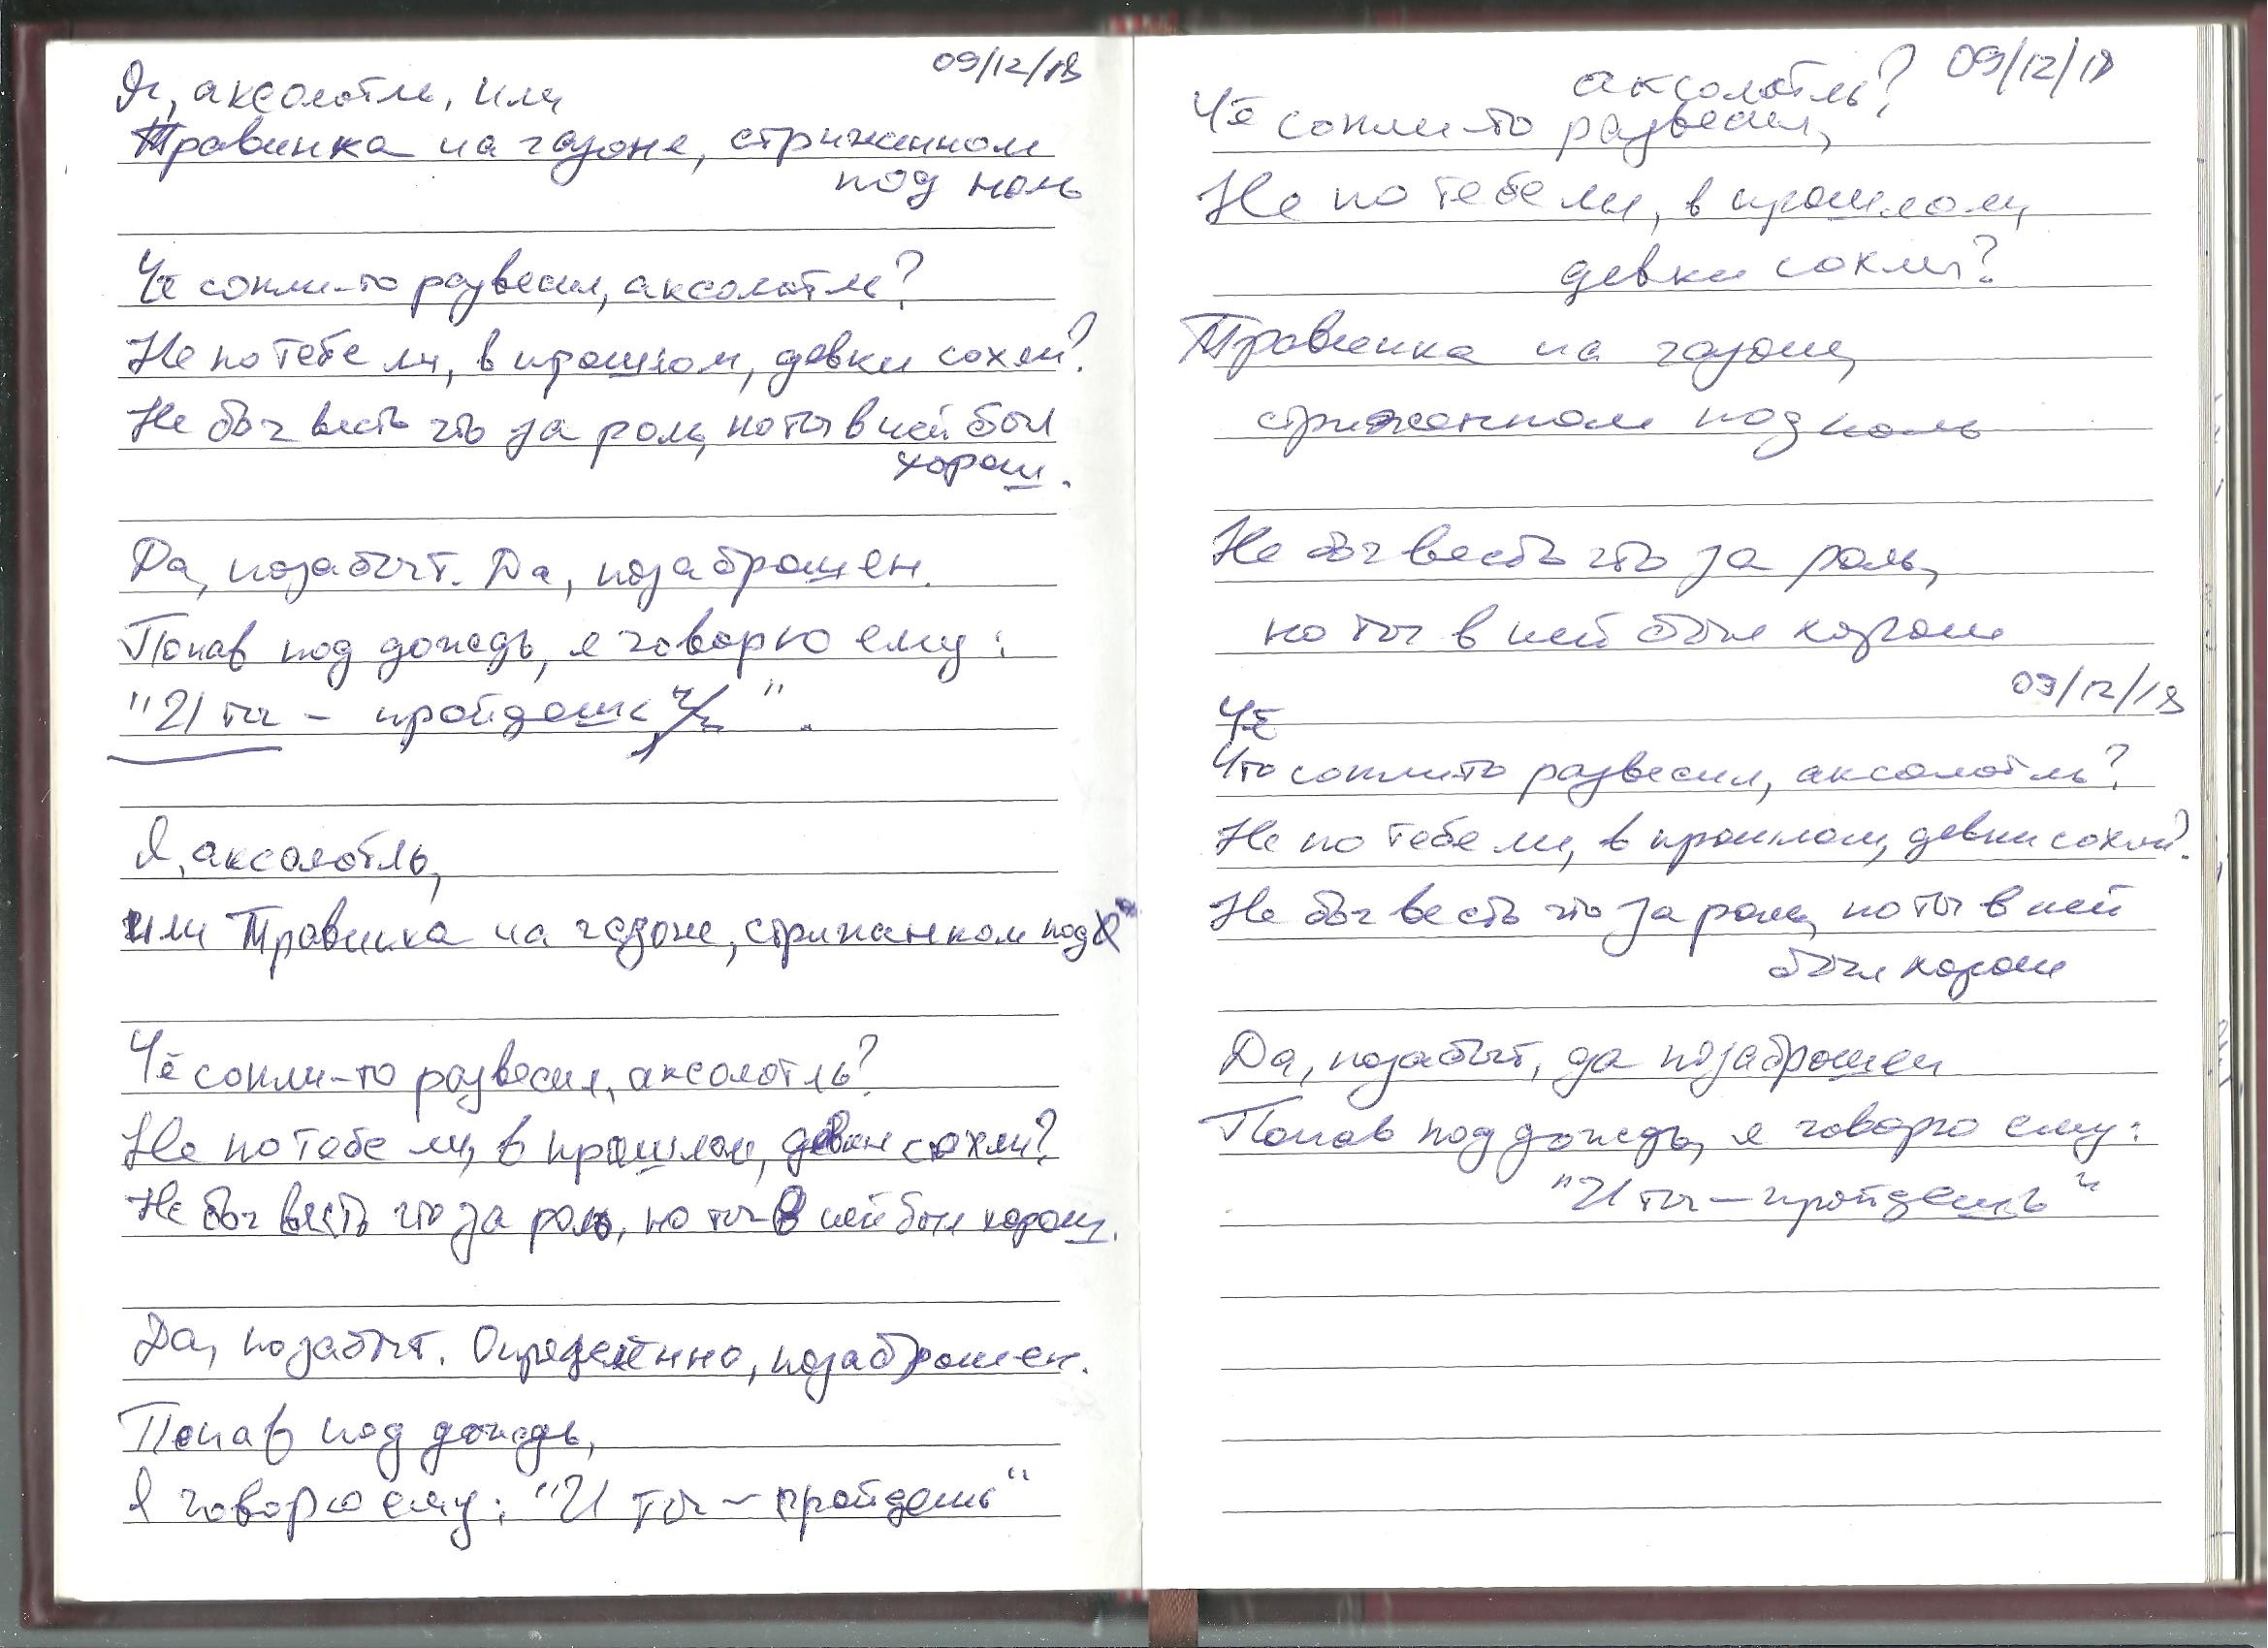 09/12/18
Я, аксолотль, или
Травинка на газоне, стриженном
под ноль
Чё сопли-то развесил, аксолотль?
Не по тебе ли, в прошлом, девки сохли?
Не бог весть что за роль, но ты в ней был
хорош.
Да, позабыт. Да, позаброшен.
Попав под дождь, я говорю ему:
"И ты – пройдешь".
Я, аксолотль,
или Травинка на газоне, стриженном под 0
Чё сопли-то развесил, аксолотль?
Не по тебе ли, в прошлом, девки сохли?
Не бог весть что за роль, но ты в ней был хорош.
Да, позабыт. Определённо, позаброшен.
Попав под дождь,
Я говорю ему: "И ты – пройдешь"
09/12/18
аксолотль?
Чё сопли-то развесил,
Не по тебе ли, в прошлом,
девки сохли?
Травинка на газоне,
стриженном под ноль
Не бог весть что за роль,
но ты в ней был хорош
09/12/18
Чё
Что сопли-то развесил, аксолотль?
Не по тебе ли, в прошлом, девки сохли?
Не бог весть что за роль, но ты в ней
был хорош
Да, позабыт, да позаброшен
Попав под дождь, я говорю ему:
"И ты – пройдешь"